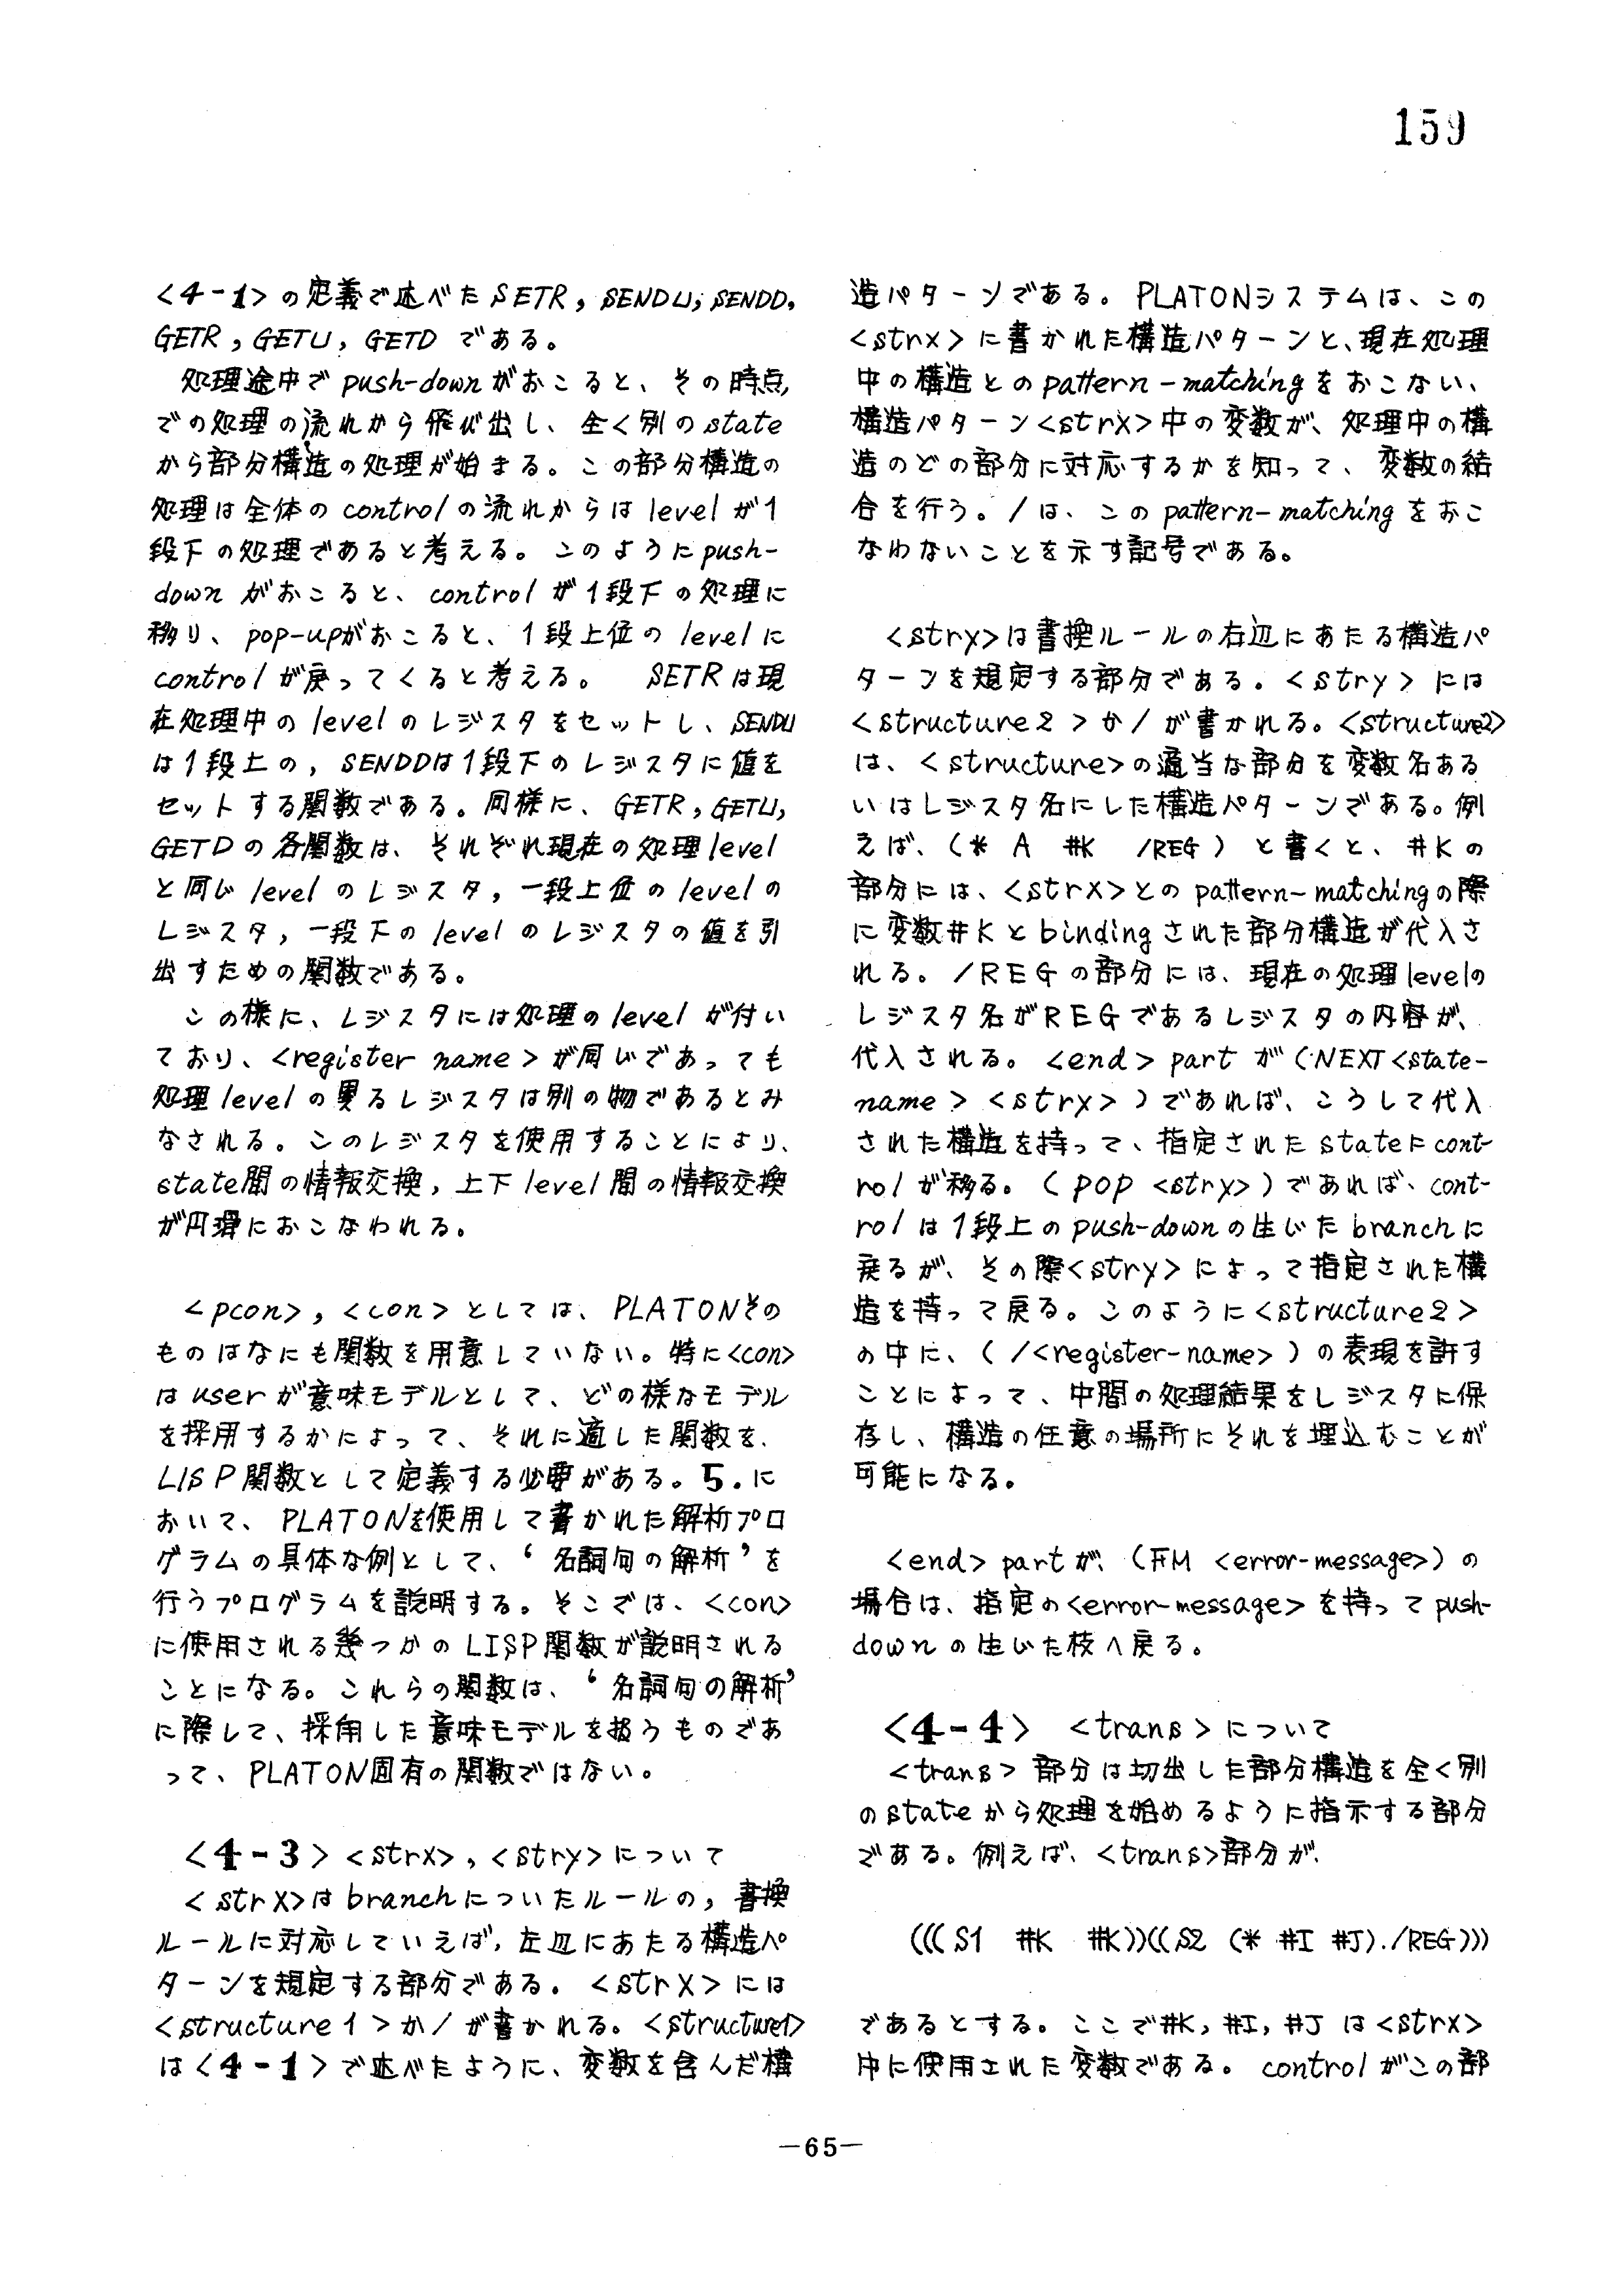 159
<4-1>の定義で述べたSETR, SENDU, SENDD,
GETR, GETU, GETD である。
処理途中でpush-downがおこると、その時点
での処理の流れから飛び出し、全く別のstate
から部分構造の処理が始まる。この部分構造の
処理は全体のcontrolの流れからはlevelが1
段下の処理であると考える。このようにpush-
downがおこると、controlが1段下の処理に
移り、pop-upがおこると、1段上位のlevelに
controlが戻ってくると考える。 SETRは現
在処理中のlevelのレジスタをセットし、SENDU
は1段上の, SENDDは1段下のレジスタに値を
セットする関数である。同様に、GETR, GETU,
GETDの各関数は、それぞれ現在の処理level
と同じlevelのレジスタ, 一段上位のlevelの
レジスタ, 一段下のlevelのレジスタの値を引
出すための関数である。
この様に、レジスタには処理のlevelが付い
ており、<register name>が同じであっても
処理levelの異るレジスタは別の物であるとみ
なされる。このレジスタを使用することにより、
state間の情報交換, 上下level間の情報交換
が円滑におこなわれる。
<pcon>, <con>としては、PLATONその
ものはなにも関数を用意していない。特に<con>
はuserが意味モデルとして、どの様なモデル
を採用するかによって、それに適した関数を、
LISP関数として定義する必要がある。5.に
おいて、PLATONを使用して書かれた解析プロ
グラムの具体な例として、‘名詞句の解析’を
行うプログラムを説明する。そこでは、<con>
に使用される幾つかのLISP関数が説明される
ことになる。これらの関数は、‘名詞句の解析’
に際して、採用した意味モデルを扱うものであ
って、PLATON固有の関数ではない。
<4-3> <strx>, <stry>について
<strx>はbranchについたルールの, 書換
ルールに対応していえば, 左辺にあたる構造パ
ターンを規定する部分である。<strx>には
<structure1>か/が書かれる。<structure1>
は<4-1>で述べたように、変数を含んだ構
造パターンである。PLATONシステムは、この
<strx>に書かれた構造パターンと、現在処理
中の構造とのpattern-matchingをおこない、
構造パターン<strx>中の変数が、処理中の構
造のどの部分に対応するかを知って、変数の結
合を行う。/は、このpattern-matchingをおこ
なわないことを示す記号である。
<stry>は書換ルールの右辺にあたる構造パ
ターンを規定する部分である。<stry>には
<structure2>か/が書かれる。<structure2>
は、<structure>の適当な部分を変数名ある
いはレジスタ名にした構造パターンである。例
えば、(* A #K /REG)と書くと、#Kの
部分には、<strx>とのpattern-matchingの際
に変数#Kとbindingされた部分構造が代入さ
れる。/REGの部分には、現在の処理levelの
レジスタ名がREGであるレジスタの内容が、
代入される。<end> partが(NEXT <state-
name> <stry>)であれば、こうして代入
された構造を持って、指定されたstateにcont-
rolが移る。(pop <stry>)であれば、cont-
rolは1段上のpush-downの生じたbranchに
戻るが、その際<stry>によって指定された構
造を持って戻る。このように<structure2>
の中に、(/<register-name>)の表現を許す
ことによって、中間の処理結果をレジスタに保
存し、構造の任意の場所にそれを埋込むことが
可能になる。
<end> partが、(FM <error-message>)の
場合は、指定の<error-message>を持ってpush-
downの生じた枝へ戻る。
<4-4> <trans>について
<trans>部分は切出した部分構造を全く別
のstateから処理を始めるように指示する部分
である。例えば、<trans>部分が、
(((S1 #K #K))((S2 (* #I #J)./REG)))
であるとする。ここで#K, #I, #Jは<strx>
中に使用された変数である。controlがこの部
—65—